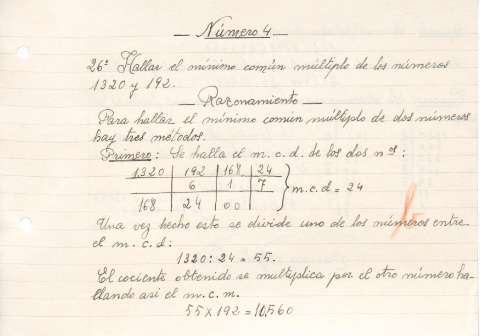 — Número 4 —
26º Hallar el mínimo común múltiplo de los números
1320 y 192.
— Razonamiento —
Para hallar el mínimo común múltiplo de dos números
hay tres métodos.
Primero: Se halla el m. c. d. de los dos nºs:
1320 | 192 | 168 | 24
6 | 1 | 7 } m.c.d = 24
168 | 24 | 00
Una vez hecho esto se divide uno de los números entre
el m. c. d:
1320 : 24 = 55.
El cociente obtenido se multiplica por el otro número ha-
llando así el m.c.m.
55 X 192 = 10,560